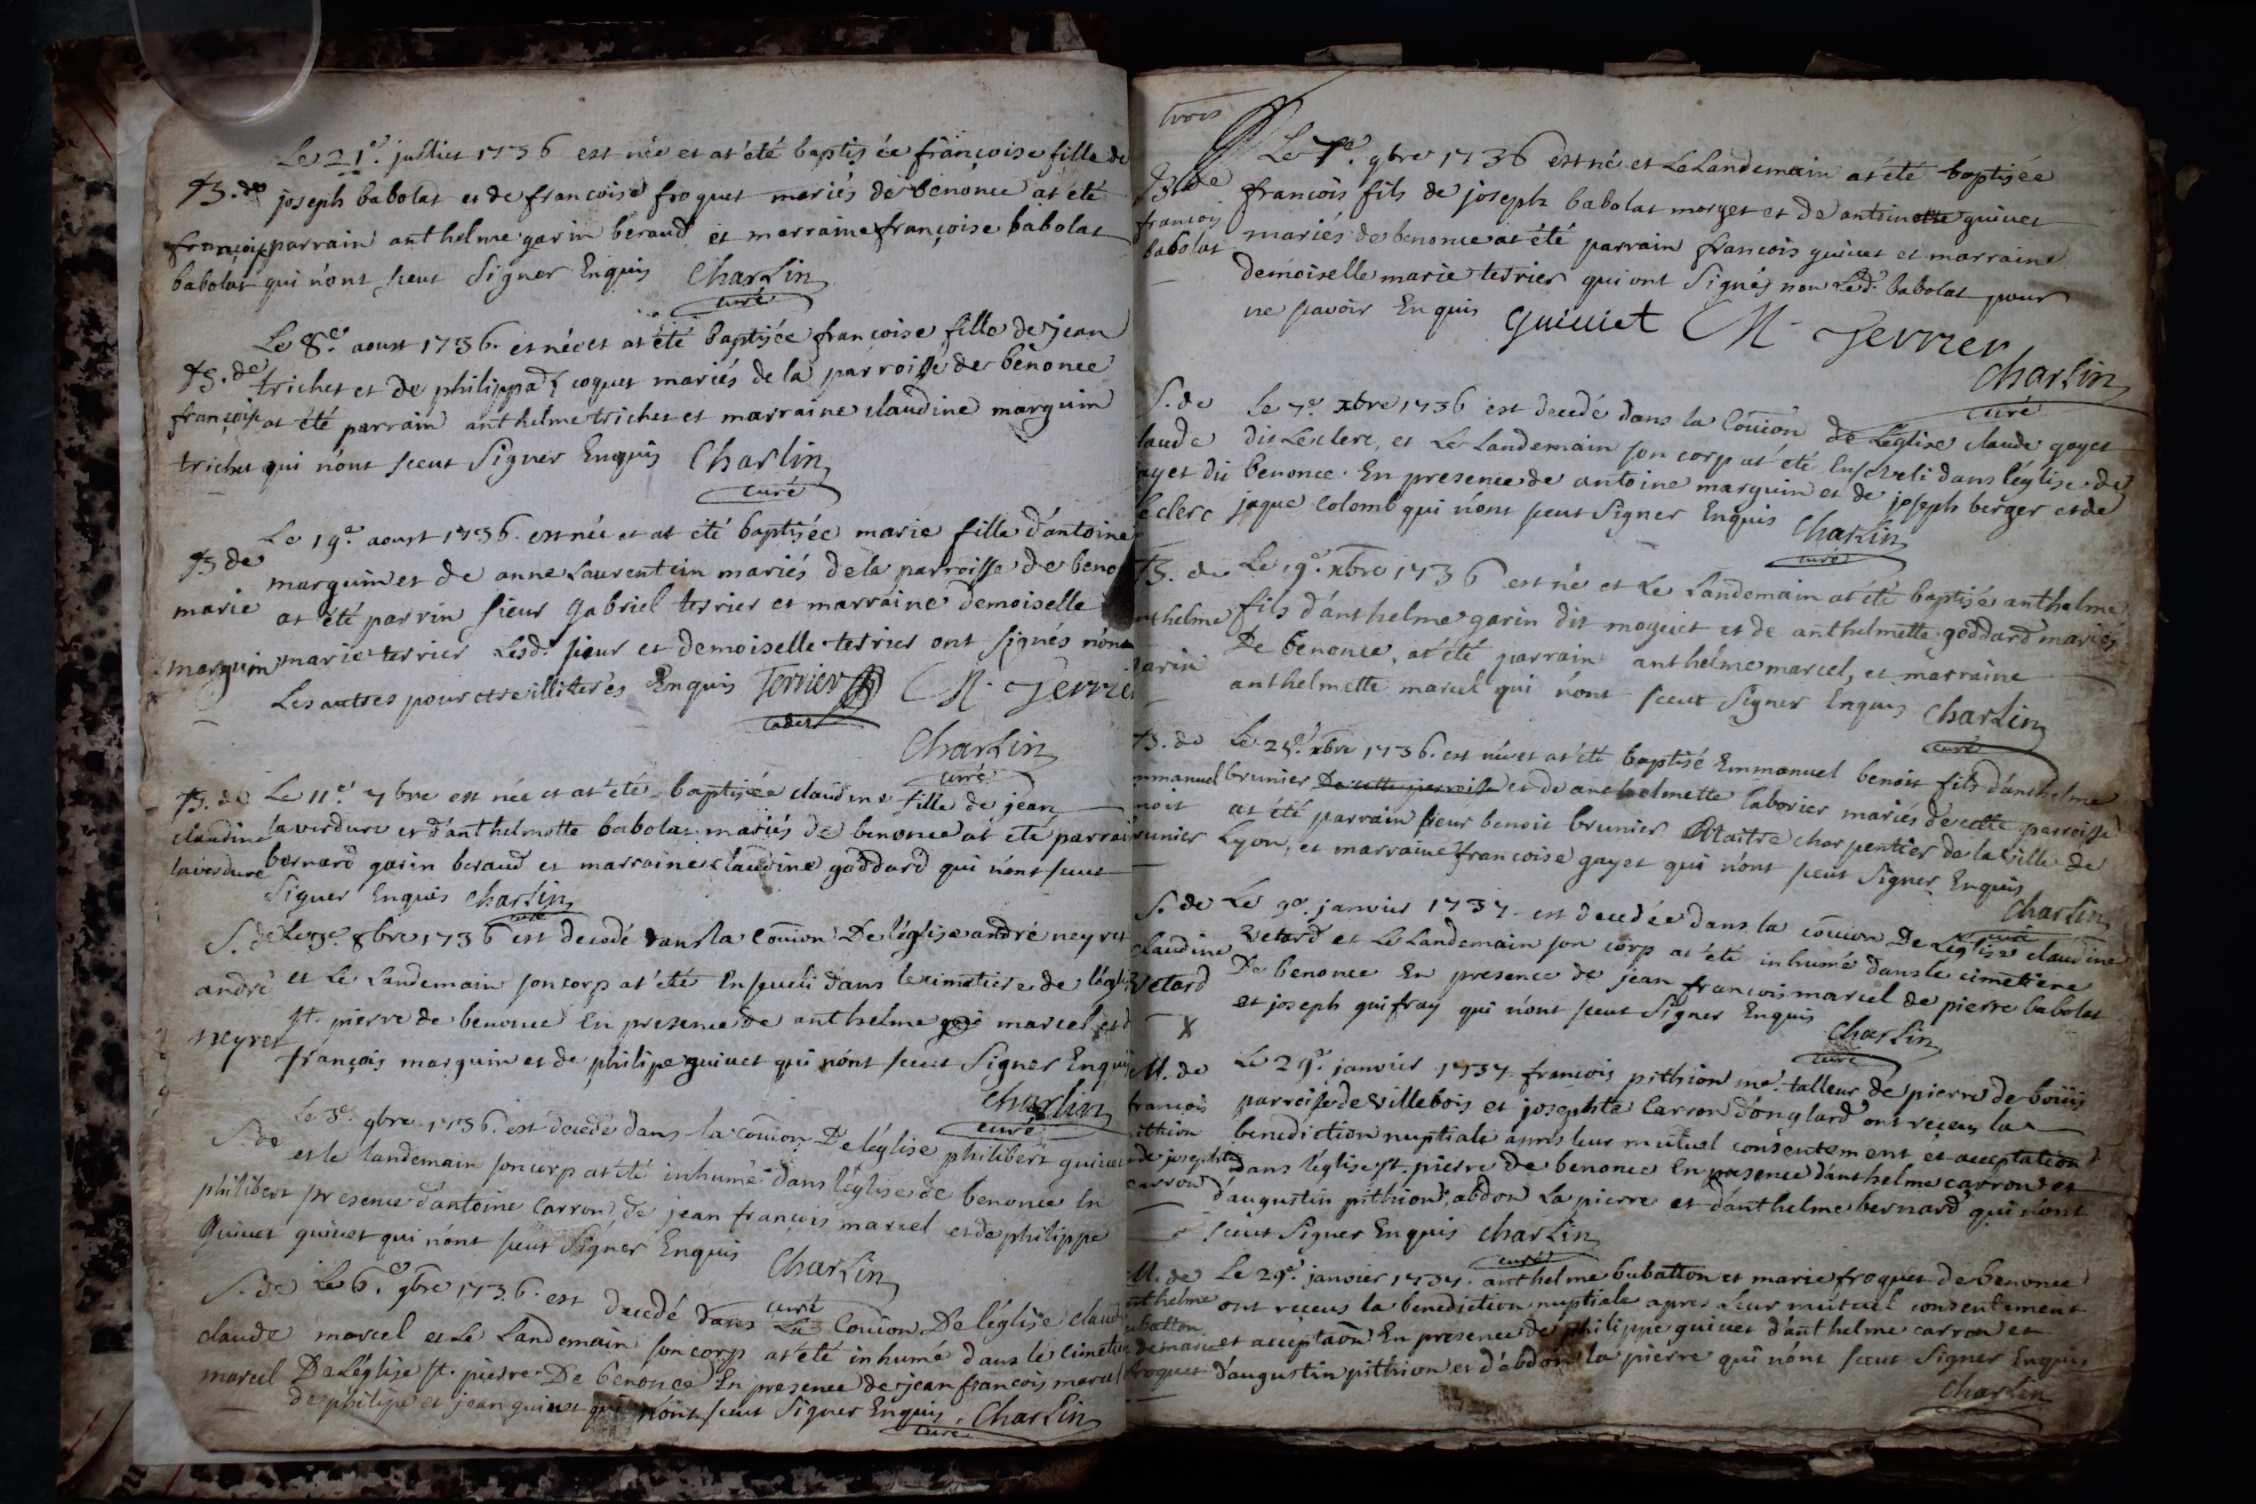 Le 21e. juillet 1736 est née et at été baptisée françoise fille de
B. de joseph babolat et de francoise froquet mariés de bénonce at été
françoise parrain anthelme garin beraud et marraine françoise babolat
babolat qui n'ont sceut Signer Enquis Charlin
curé
Le 8e. aoust 1736. est née et at été baptisée françoise fille de jean
B. de trichet et de philippa coquet mariés de la parroisse de bénonce
françoise at été parrain anthelme trichet et marraine claudine marguin
trichet qui n'ont sceut Signer Enquis Charlin
curé
Le 19e aoust 1736. est née et at été baptisée marie fille d'antoine
B de marguin et de anne Laurent uin mariés de la parroisse de beno
marie at été parrin sieur gabriel terrier et marraine demoiselle
marguin marie terrier Lesd. sieur et demoiselle terrier ont signés n'ont
Les autres pour etre illiterés Enquis Terrier M. Terrie
Charlin
curé
B. de Le 11e 7bre est née et at été baptisée claudine fille de jean
claudine laverdure et d'anthelmette babolat mariés de benonce at été parrai
laverdure bernard garin beraud et marraine claudine goddard qui n'ont sceut
Signer Enquis Charlin
curé
S. de Le 3e. 8bre 1736 est decedé dans la coũion De léglise andré neyret
andré et Le Landemain son corp at été Enseveli dans le cimetiere de légli
neyret st. pierre de benonce En presence de anthelme marcel et d
françois marguin et de philipe guivet qui n'ont sceut Signer Enquis
Charlin
curé
Le 3e. 9bre 1736. est decedé dans la coũion De léglise philibert guivet
S. de et le landemain son corp at été inhumé dans léglise de benonce En
philibert presence d'antoine Carron de jean françois marcel et de philippe
Guivet guivet qui n'ont sceut Signer Enquis Charlin
curé
S. de Le 6.e 9bre 1736. est decedé dans La Coũion De léglise claud
claude marcel et Le Landemain son corp at été inhumé dans le cimetie
marcel De Léglise st. pierre De benonce En presence de jean françois marcel
de philipe et jean guivet qui n'ont sceut Signer Enquis. Charlin
curé
trois
Le 7e. 9bre 1736 est né et Le Landemain at été baptisée
B. de francois fils de joseph babolat morget et de antoinette guivet
francois mariés de benonce at été parrain francois guivet et marraine
babolat demoiselle marie terrier qui ont Signés non Led. babolat pour
ne savoir Enquis guivict M. Terrier
Charlin
curé
S. de Le 7e. xbre 1736 est decedé dans la Coũion de Léglise claude gayet
laude dit Leclerc, et Le Landemain son corp at été Enseveli dans léglise de
ayet dit benonce. En presence de antoine marguin et de joseph berger et de
leclerc jaque Colomb qui n'ont sceut Signer Enquis Charlin
curé
B. de Le 19e. xbre 1736 est né et Le Landemain at été baptisé anthelme
nthelme fils d'anthelme garin dit moquet et de anthelmette goddard mariés
arin De benonce, at été parrain anthelme marcel, et marraine
anthelmette marcel qui n'ont sceut Signer Enquis Charlin
curé
B. de Le 25e. xbre 1736. est né et at été baptisé Emmanuel benoit fils d'anthelme
mmanuel brunier De cette parroisse et de anthelmette laborier mariés de cette parroisse
noit at été parrain sieur benoit brunier Maitre charpentier de la ville de
runier Lyon, et marraine francoise gayet qui n'ont sceut Signer Enquis
Charlin
curé
S. de Le 9e. janvier 1737. est decedée dans la coũion De Léglise claudine
claudine vetard et Le Landemain son corp at été inhumé dans le cimetiere
vetard De benonce En presence de jean francois marcel de pierre babolat
et joseph guifray qui n'ont sceut Signer Enquis
X Charlin
curé
M. de Le 29e janvier 1737. francois pithion me. talleur de pierre de boüis
francois parroisse de villebois et josephte Carron d'onglard ont receus la
ithion benediction nuptiale après leur mutuel consentement et acceptation
de josephte dans léglise st. pierre de benonce En presence d'anthelme carron et
carron d'augustin pithion, abdon La pierre et d'anthelme bernard qui n'ont
sceut Signer Enquis Charlin
curé
M. de Le 29e. janvier 1737. anthelme bubatton et marie froquet de benonce
nthelme ont receus la benediction nuptiale apres Leur mutuel consentement
ubatton
de marie et acceptaõn En presence de philippe guivet d'anthelme carron et
froquet d'augustin pithion et d'abdon la pierre qui n'ont sceut Signer Enquis
Charlin